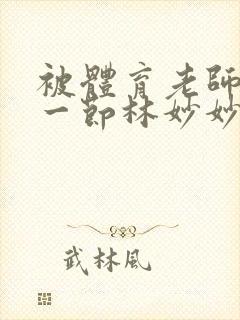 被體育老師
一節林妙妙
武林風